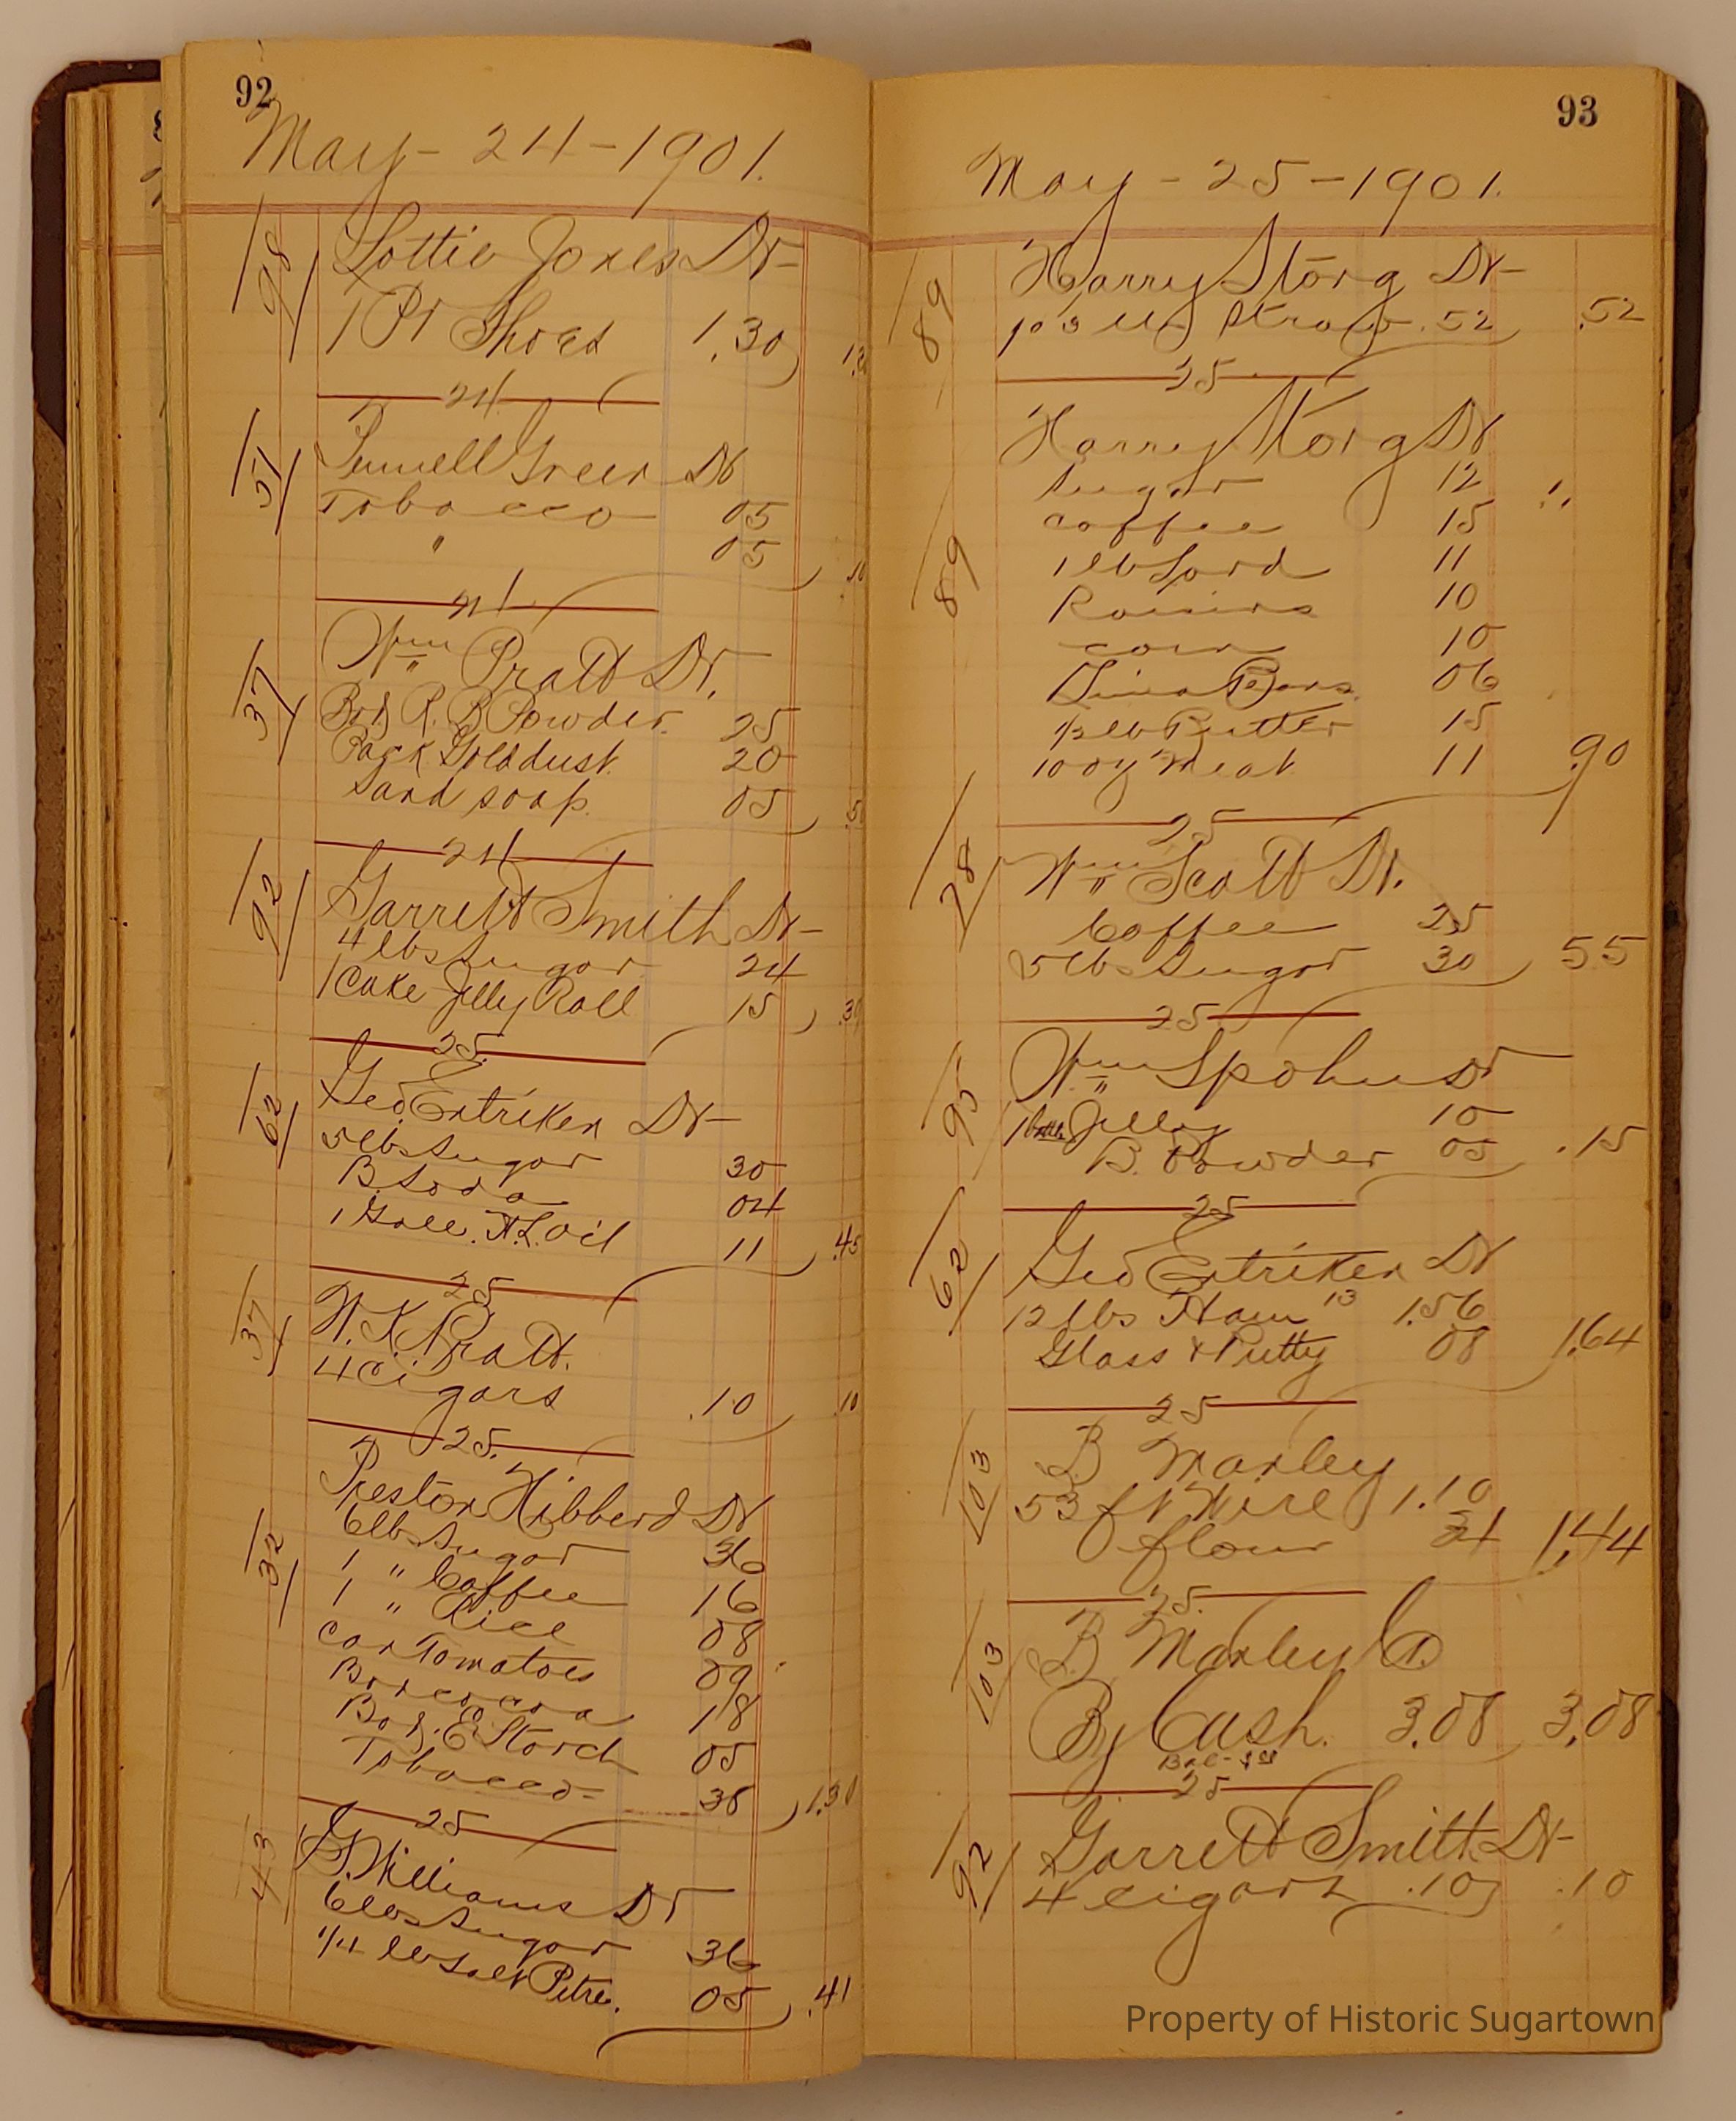 92
May - 24 - 1901.
98
Lottie Jones Dr
1 Pr Shoes 1.30
24
51
Green Dr
Tobacco 05
" 05 .10
24
37
Wm Pratt Dr.
R. B Powder. 25
Pack Golddust. 20
Sand soap. 05
24
92
Garrett Smith Dr
4 lbs Sugar 24
1 Cake Jelly Roll 15 .39
25.
62
Geo Entriken Dr
5 lbs Sugar 30
B. Soda 04
1 Gall. H.L. Oil 11 .45
25
37
W. K. Pratt.
4 Cigars .10 .10
25.
32
Preston Hibberd Dr
6 lbs Sugar 36
1 " Coffee 16
1 " Rice 08
can Tomatoes 09
18
Box. E Starch 05
Tobacco 38 1.30
25
43
G. Williams Dr
6 lbs Sugar 36
1/4 lb Salt Petre. 05 .41
93
May - 25 - 1901.
89
Harry Storg Dr
103 lbs Straw .52 .52
25
89
Harry Storg Dr
Sugar 12
coffee 15
1 lb Lard 11
Raisins 10
corn 10
Lima Bans 06
1/2 lb Butter 15
10 oz Meat 11 .90
25
28
Wm Scott Dr.
Coffee 25
5 lbs Sugar 30 55
25
95
Wm Spohn Dr
1 bottle Jelly 10
B. Powder 05 .15
25
62
Geo Entriken Dr
12 lbs Ham 13 1.56
Glass & Putty 08 1.64
25
103
B Marley
53 ft Wire 1.10
flour 34 1.44
25.
103
B Marley Cr.
By Cash. 3.08 3.08
25
92
Garrett Smith Dr
4 cigars .10 .10
Property of Historic Sugartown